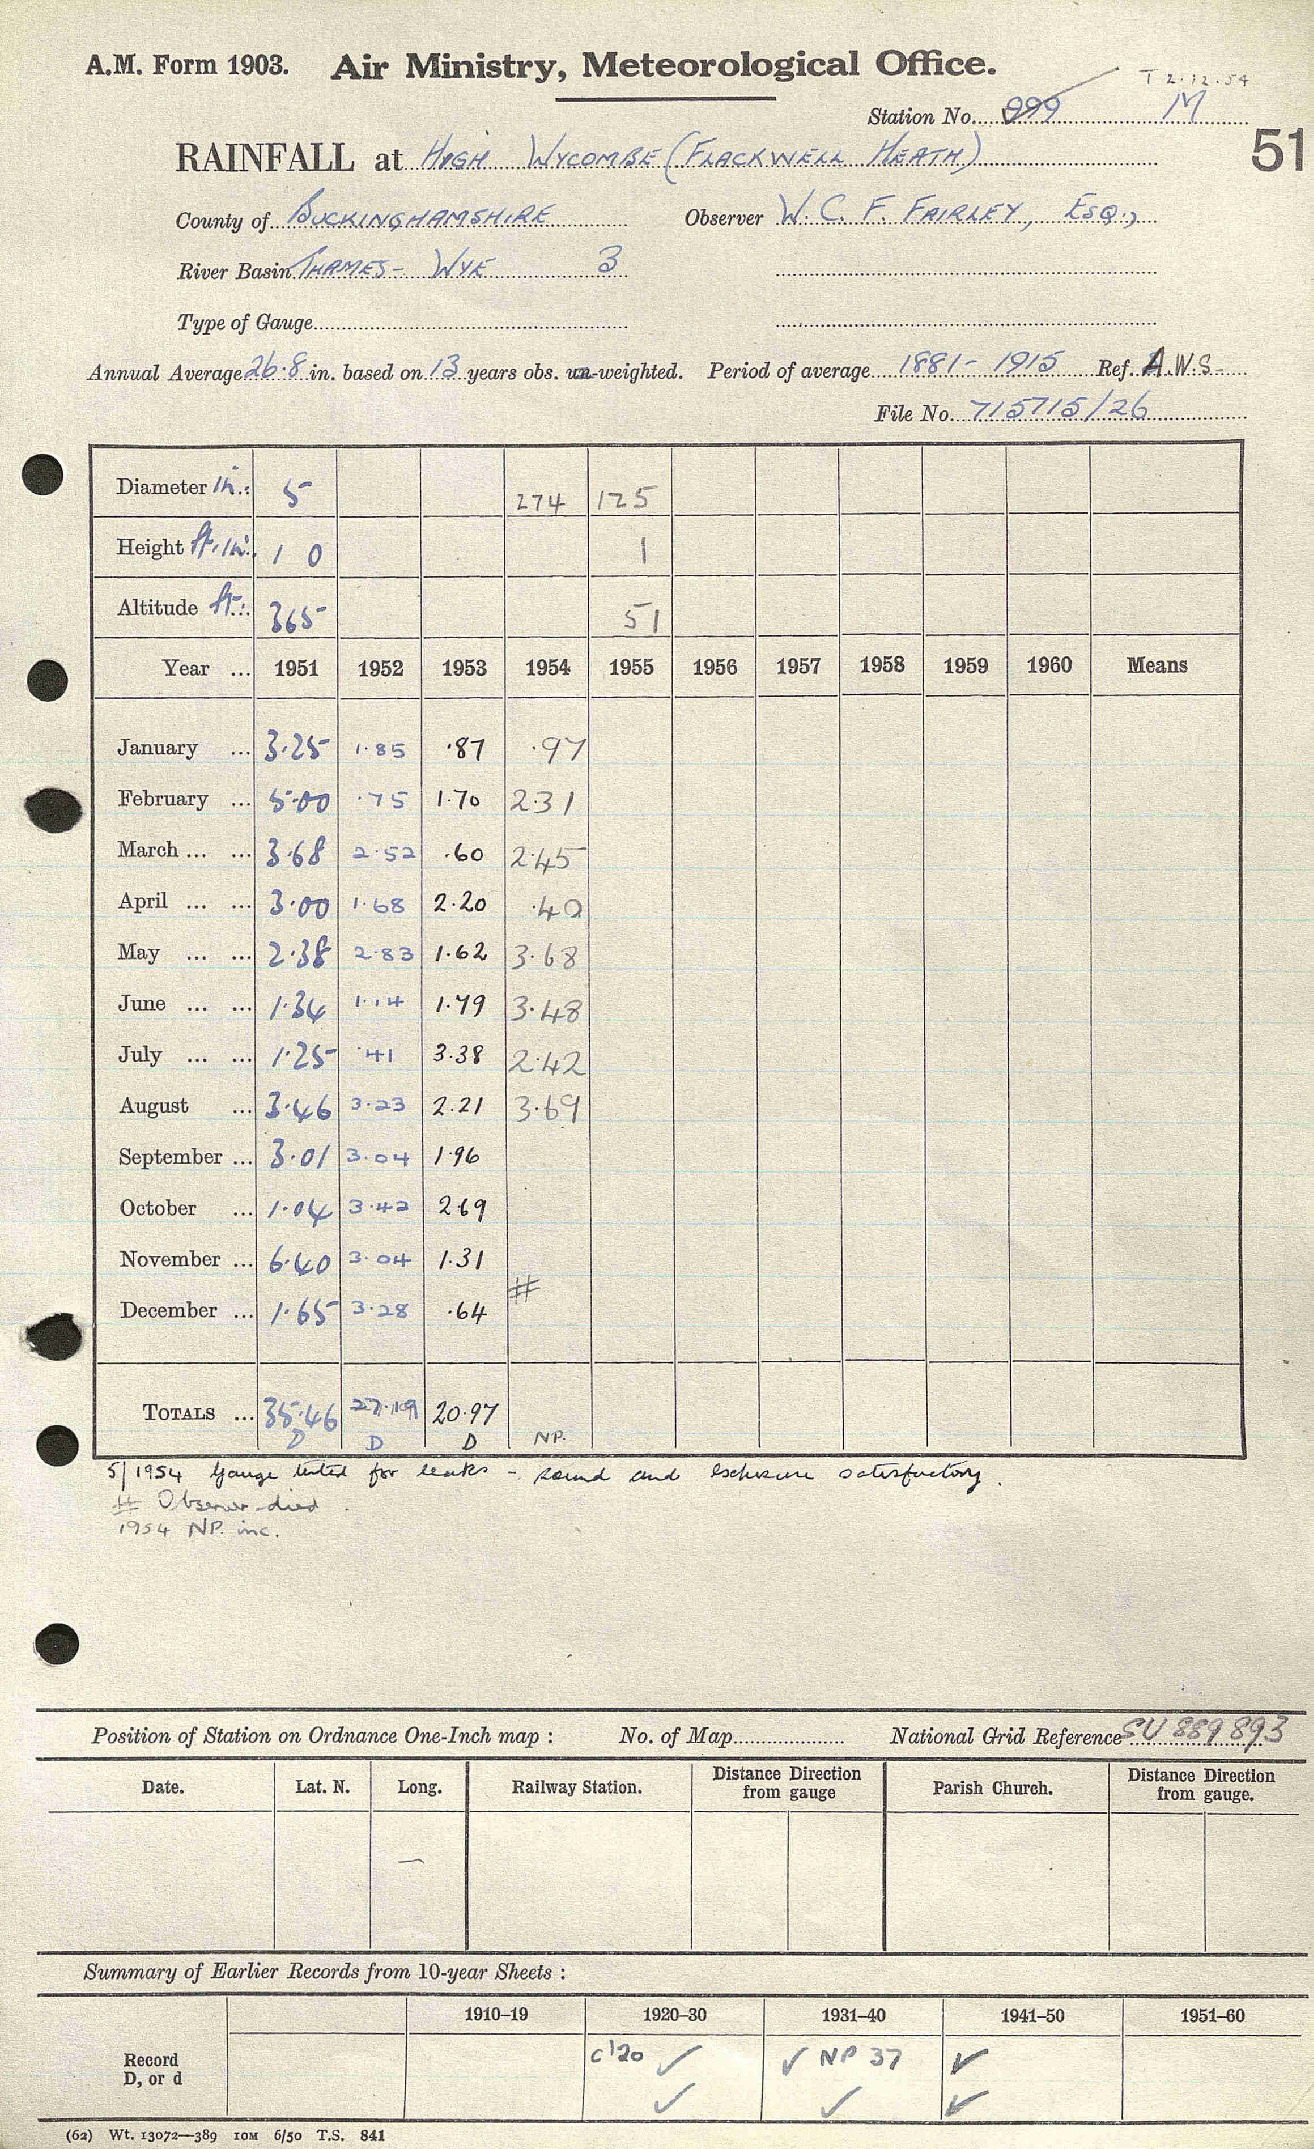 A.M. Form 1903. Air Ministry, Meteorological Office.
T 2.12.54
Station No. 999 M
51
RAINFALL at HIGH WYCOMBE (FLACKWELL HEATH)
County of BUCKINGHAMSHIRE Observer W. C. F. FAIRLEY, ESQ.,
River Basin THAMES - WYE 3
Type of Gauge
Annual Average 26.8 in. based on 13 years obs. un-weighted. Period of average 1881 - 1915 Ref. A.W.S.
File No. 715715/26
Diameter in.: 5 274 125
Height ft. in. 1 0 1
Altitude ft.: 365 51
Year ... 1951 1952 1953 1954 1955 1956 1957 1958 1959 1960 Means
January ... 3.25 1.85 .87 .97
February ... 5.00 .75 1.70 2.31
March ... ... 3.68 2.52 .60 2.45
April ... ... 3.00 1.68 2.20 .40
May ... ... 2.38 2.83 1.62 3.68
June ... ... 1.34 1.14 1.79 3.48
July ... ... 1.25 .41 3.38 2.42
August ... 3.46 3.23 2.21 3.69
September ... 3.01 3.04 1.96
October ... 1.04 3.42 2.69
November ... 6.40 3.04 1.31
#
December ... 1.65 3.28 .64
TOTALS ... 35.46 27.19 20.97
D D D NP.
5/1954 Gauge tested for leaks - sound and exposure satisfactory.
# Observer died
1954 NP. inc.
Position of Station on Ordnance One-Inch map : No. of Map National Grid Reference SU 889893
Date. Lat. N. Long. Railway Station. Distance Direction from gauge Parish Church. Distance Direction from gauge.
—
Summary of Earlier Records from 10-year Sheets :
1910–19 1920–30 1931–40 1941–50 1951–60
Record c'20 ✓ ✓ NP 37 ✓
D, or d ✓ ✓ ✓
(62) Wt. 13072—389 10M 6/50 T.S. 841